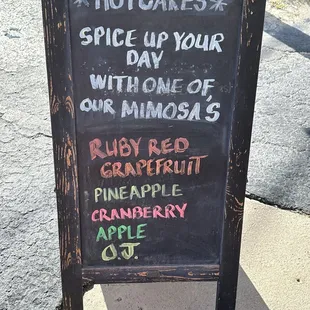 *HOTCAKES*
SPICE UP YOUR
DAY
WITH ONE OF
OUR MIMOSA'S
RUBY RED
GRAPEFRUIT
PINEAPPLE
CRANBERRY
APPLE
O.J.